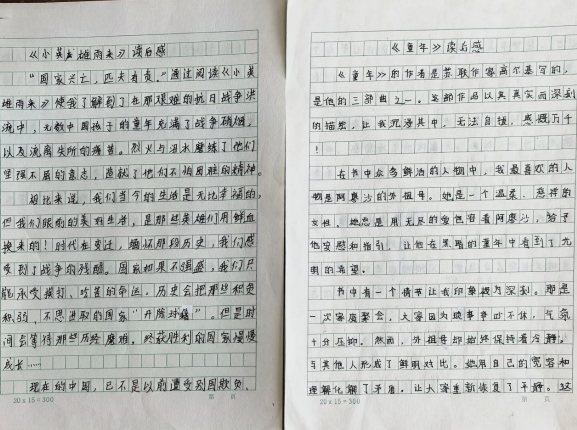 《小英雄雨来》读后感
“国家兴亡，匹夫有责。”通过阅读《小英
雄雨来》使我了解到了在那艰难的抗日战争洪
流中，无数中国孩子的童年充满了战争硝烟，
以及流离失所的痛苦。烈火与泪水磨练了他们
坚强不屈的意志，造就了他们不怕困难的精神。
相比来说，我们当今的生活是无比幸福的，
但我们眼前的美好生活，是那些英雄们用鲜血
换来的！时代在变迁，缅怀那段历史，我们感
受到了战争的残酷。国家如果不强盛，我们只
能承受挨打、吃苦的命运。历史会把那些积贫
积弱、不思进取的国家“开除球籍”。但是时
间会等待那些历经磨难，终获胜利的国家慢慢
成长……
现在的中国，已不是以前遭受别国欺负、
20×15=300
第 页
《童年》读后感
《童年》的作者是苏联作家高尔基写的，
是他的三部曲之一。全部作品以其真实而深刻
的描绘，让我沉浸其中，无法自拔，感慨万千
！
在书中众多鲜活的人物中，我最喜欢的人
物是阿廖沙的外祖母。她是一个温柔、慈祥的
女性。她总是用无尽的爱包容着阿廖沙，给予
他安慰和指引，让他在黑暗的童年中看到了光
明的希望。
书中有一个情节让我印象极为深刻。那是
一次家庭聚会，大家因为琐事争吵不休，气氛
十分压抑。然而，外祖母却始终保持着冷静，
与其他人形成了鲜明对比。她用自己的宽容和
理解化解了矛盾，让大家重新恢复了平静。这
20×15=300
第 页